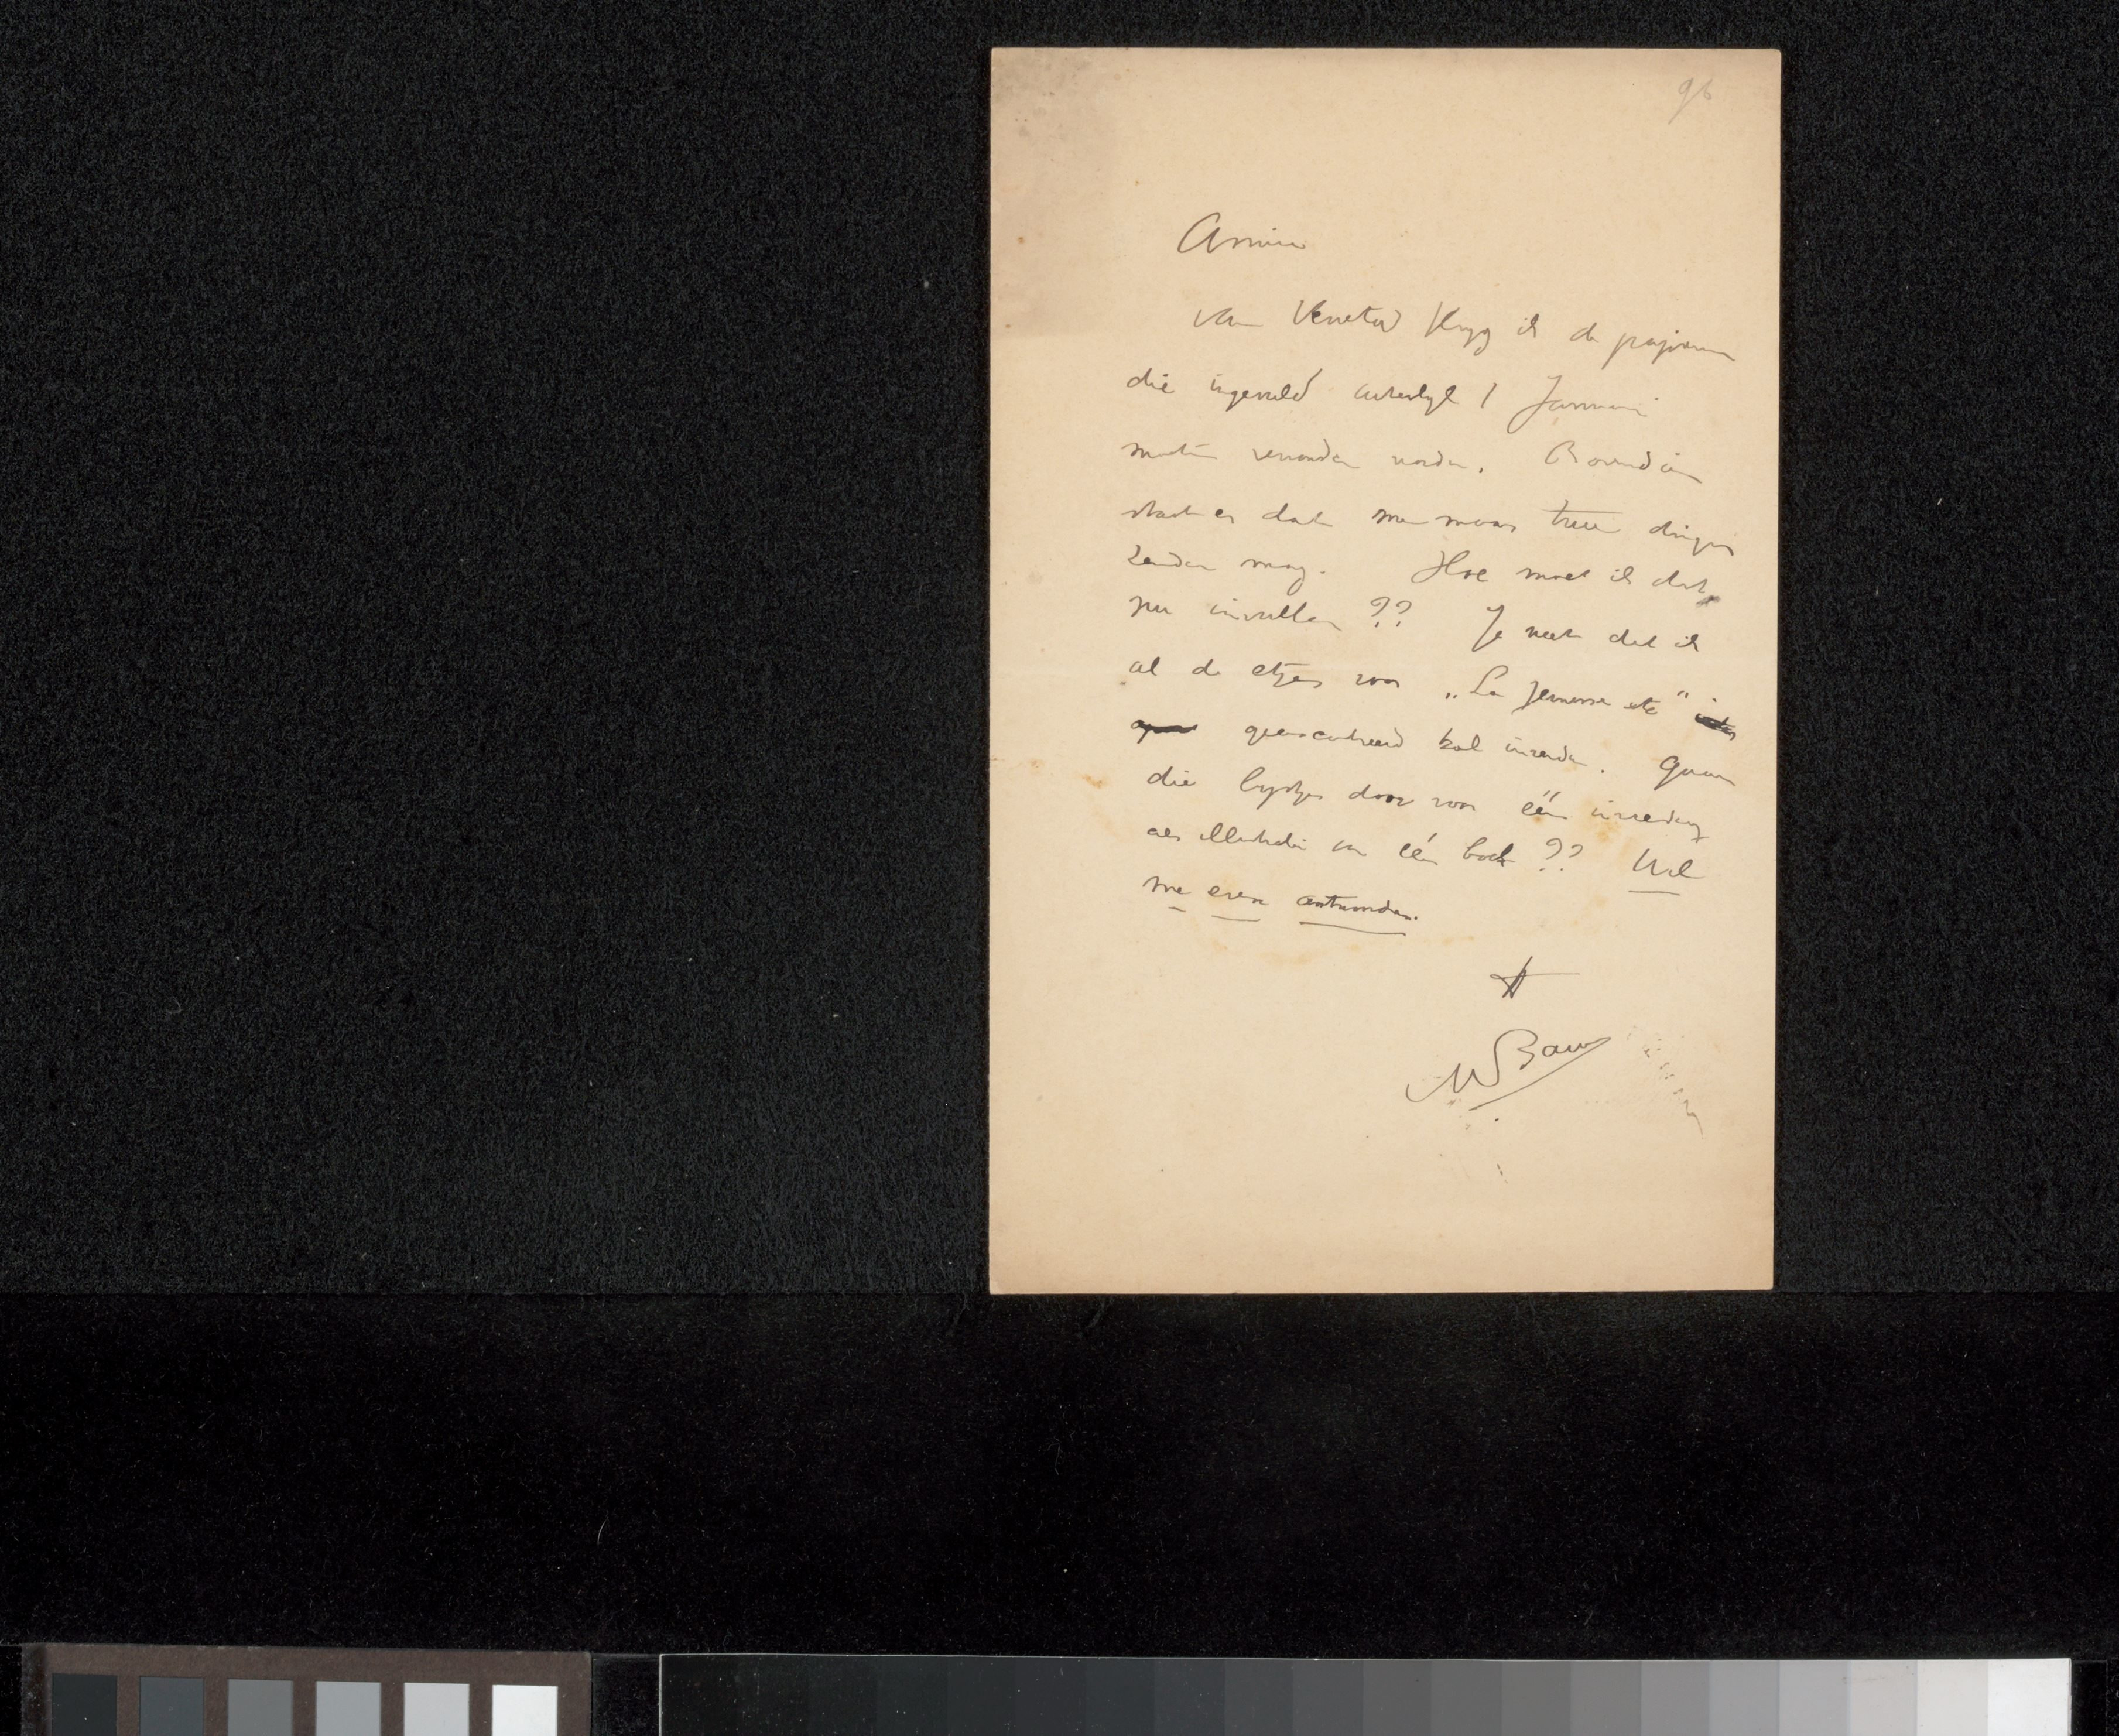 96
Amice
van Venetië kryg ik de papieren
die ingevuld uiterlyk 1 Januari
moeten verzonden worden. Bovendien
staat er dat men maar twee dingen
zenden mag. Hoe moet ik dat
nu invullen ?? Je weet dat ik
al de etsjes voor „La Jeunesse etc"
geencadreerd zal inzenden. Gaan
die lystjes door voor één inzending
als illustratie van één boek ?? Wil
me even antwoorden.
MBauer